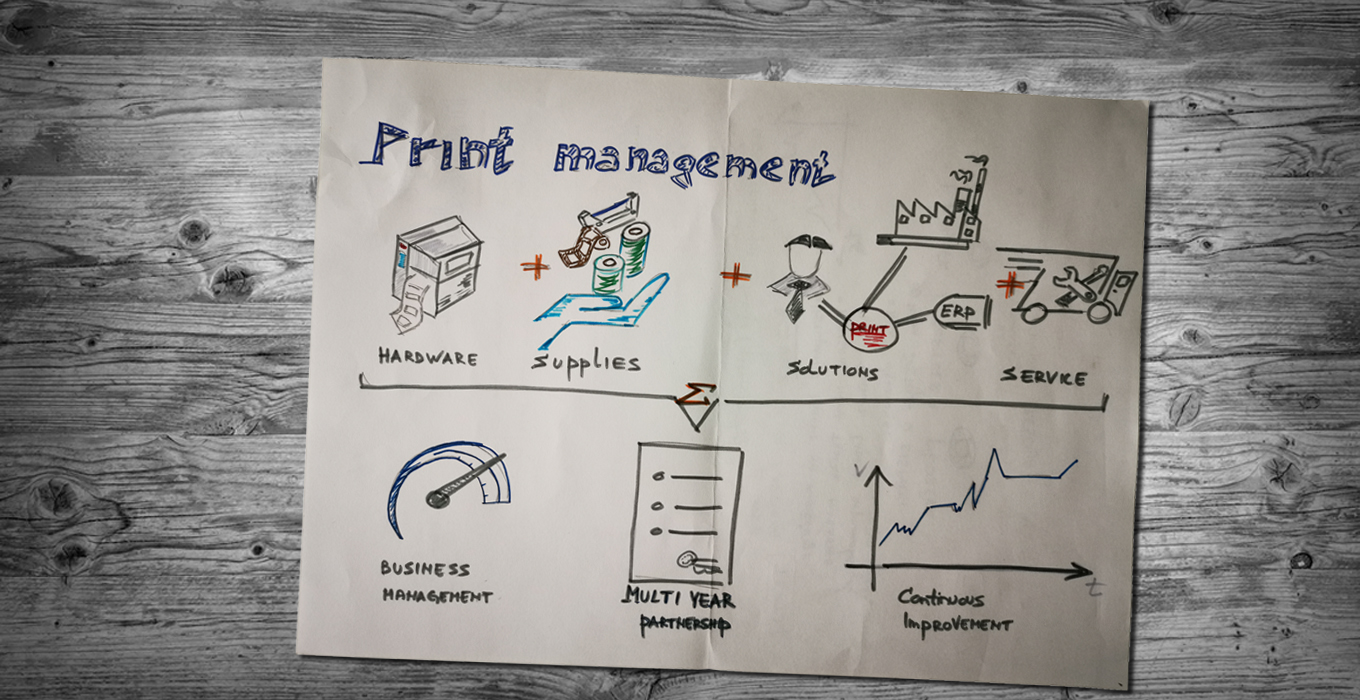 Print management
+
+
+
PRINT
ERP
HARDWARE
Supplies
SOLUTIONS
SERVICE
Σ
V
t
BUSINESS
MANAGEMENT
MULTI YEAR
PARTNERSHIP
Continuous
IMPROVEMENT